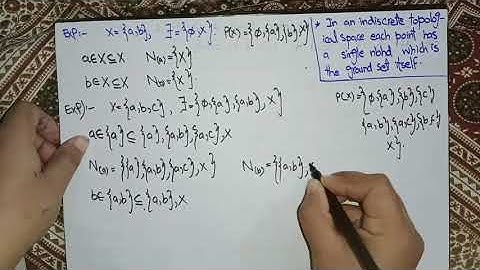 Exp:- X={a,b}, ℐ={ϕ,X} P(X)={ϕ,{a},{b},X}
a∈X⊆X N(a)={X}
b∈X⊆X N(b)={X}
* In an indiscrete topolo-
gical space each point has
a single nbhd which is
the ground set itself.
Exp:- X={a,b,c}, ℐ={ϕ,{a},{a,b},X}
P(X)={ϕ,{a},{b},{c}
{a,b},{a,c},{b,c}
X}
a∈{a}⊆{a},{a,b},{a,c},X
N(a)={{a},{a,b},{a,c},X} N(b)={{a,b},
b∈{a,b}⊆{a,b},X